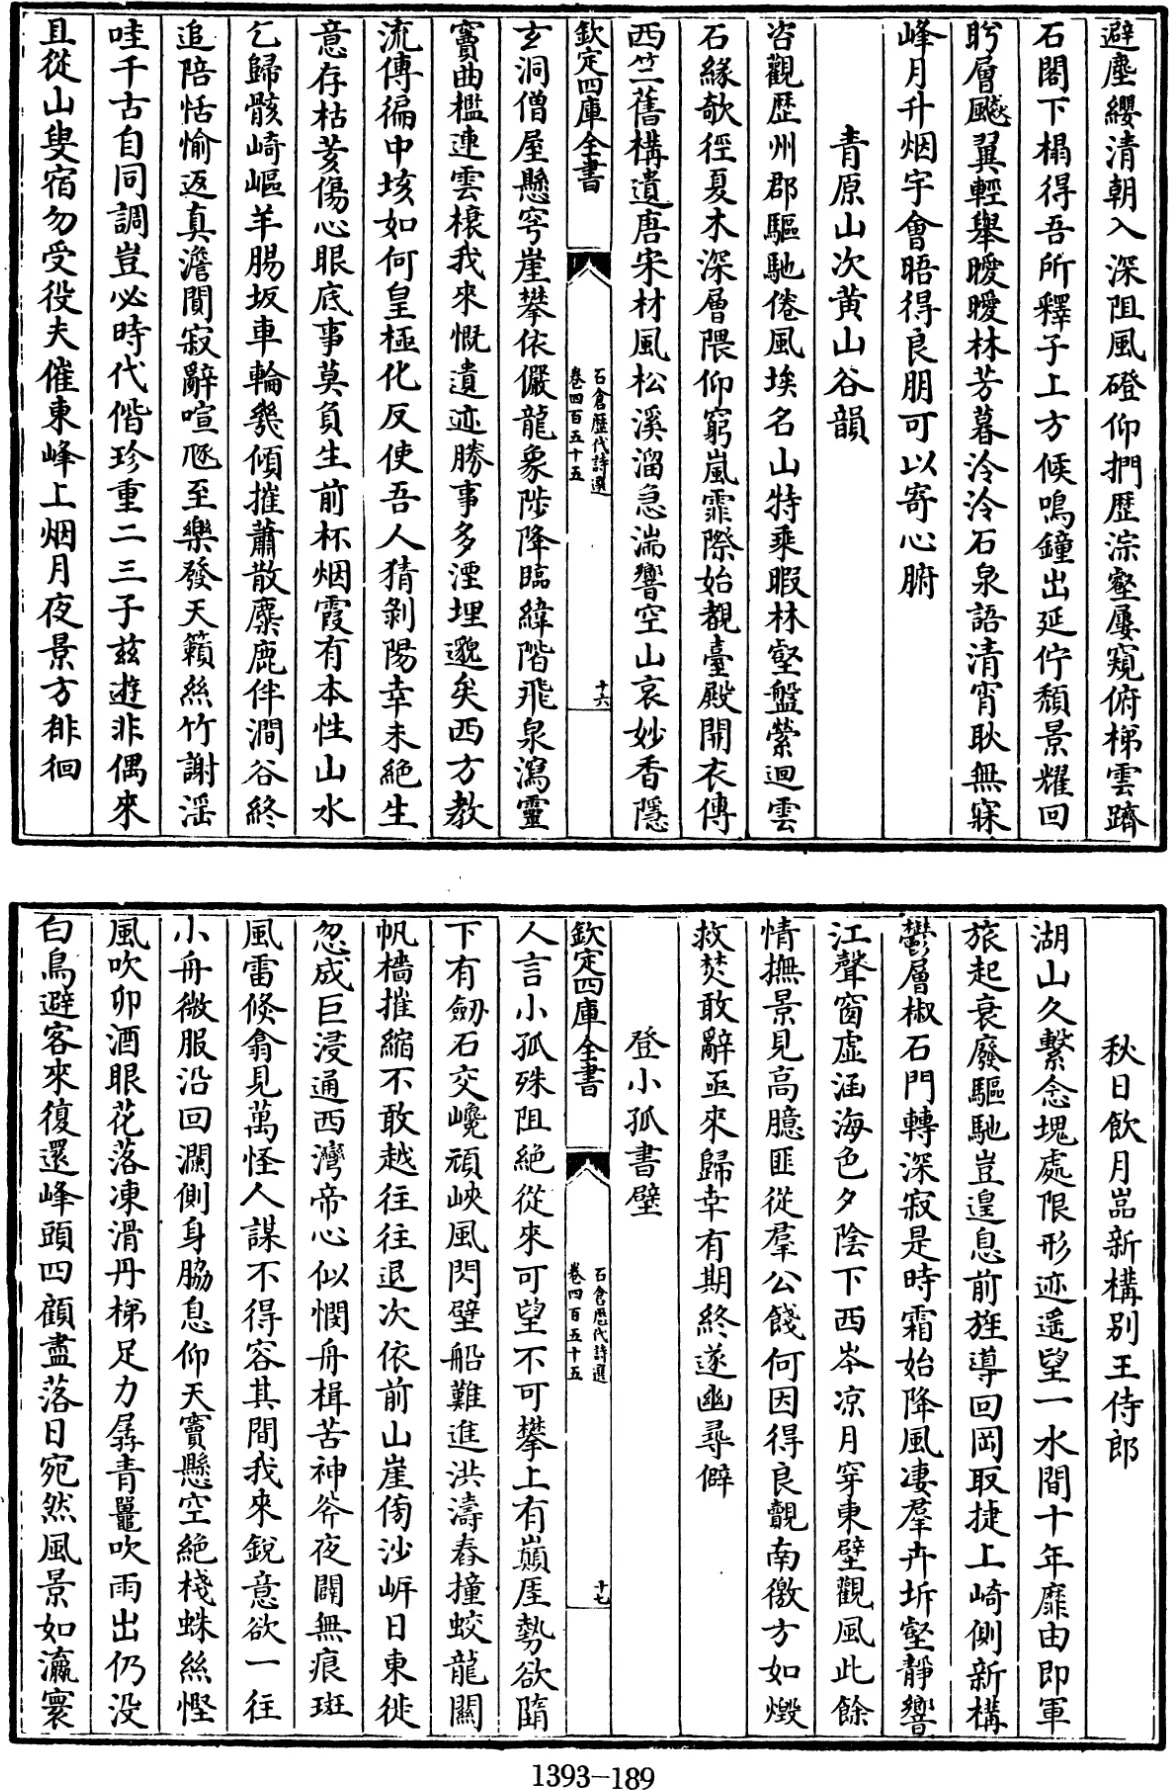 避塵纓清朝入深阻風磴仰捫歷淙壑屢窺俯梯雲躋
石閣下榻得吾所釋子上方候鳴鐘出延佇頹景耀回
盻層飈翼輕舉曖曖林芳暮泠泠石泉語清宵耿無寐
峰月升烟宇會晤得良朋可以寄心腑
青原山次黄山谷韻
咨觀歷州郡驅馳倦風埃名山特乘暇林壑盤縈迴雲
石緣欹徑夏木深層隈仰窮嵐霏際始覩臺殿開衣傳
西竺舊構遺唐宋材風松溪溜急湍響空山哀妙香隱
玄洞僧屋懸穹崖攀依儼龍象陟降臨緯階飛泉瀉靈
竇曲檻連雲榱我來慨遺迹勝事多湮埋邈矣西方教
流傳徧中垓如何皇極化反使吾人猜剝陽幸未絶生
意存枯荄傷心眼底事莫負生前杯烟霞有本性山水
乞歸骸崎嶇羊腸坂車輪幾傾摧蕭散麋鹿伴澗谷終
追陪恬愉返真澹閴寂辭喧豗至樂發天籟絲竹謝淫
哇千古自同調豈必時代偕珍重二三子兹遊非偶來
且從山叟宿勿受役夫催東峰上烟月夜景方徘徊
欽定四庫全書
石倉歷代詩選
卷四百五十五
十六
秋日飲月嵓新構别王侍郎
湖山久繫念塊處限形迹遥望一水間十年靡由即軍
旅起衰廢驅馳豈遑息前旌導回岡取捷上崎側新構
鬱層椒石門轉深寂是時霜始降風凄羣卉坼壑静響
江聲窗虚涵海色夕陰下西岑凉月穿東壁觀風此餘
情撫景見高臆匪從羣公餞何因得良覿南徼方如燬
救焚敢辭亟來歸幸有期終遂幽尋僻
登小孤書壁
人言小孤殊阻絶從來可望不可攀上有巔厓勢欲墮
下有劒石交巉頑峽風閃壁船難進洪濤舂撞蛟龍關
帆檣摧縮不敢越往往退次依前山崖傍沙岍日東徙
忽成巨浸通西灣帝心似憫舟楫苦神斧夜闢無痕斑
風雷倏翕見萬怪人謀不得容其間我來鋭意欲一往
小舟微服沿回瀾側身脇息仰天竇懸空絶棧蛛絲慳
風吹卯酒眼花落凍滑丹梯足力孱青鼉吹雨出仍没
白鳥避客來復還峰頭四顧盡落日宛然風景如瀛寰
欽定四庫全書
石倉歷代詩選
卷四百五十五
十七
1393-189